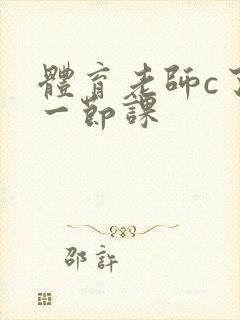 體育老師c了
一節課
邵許